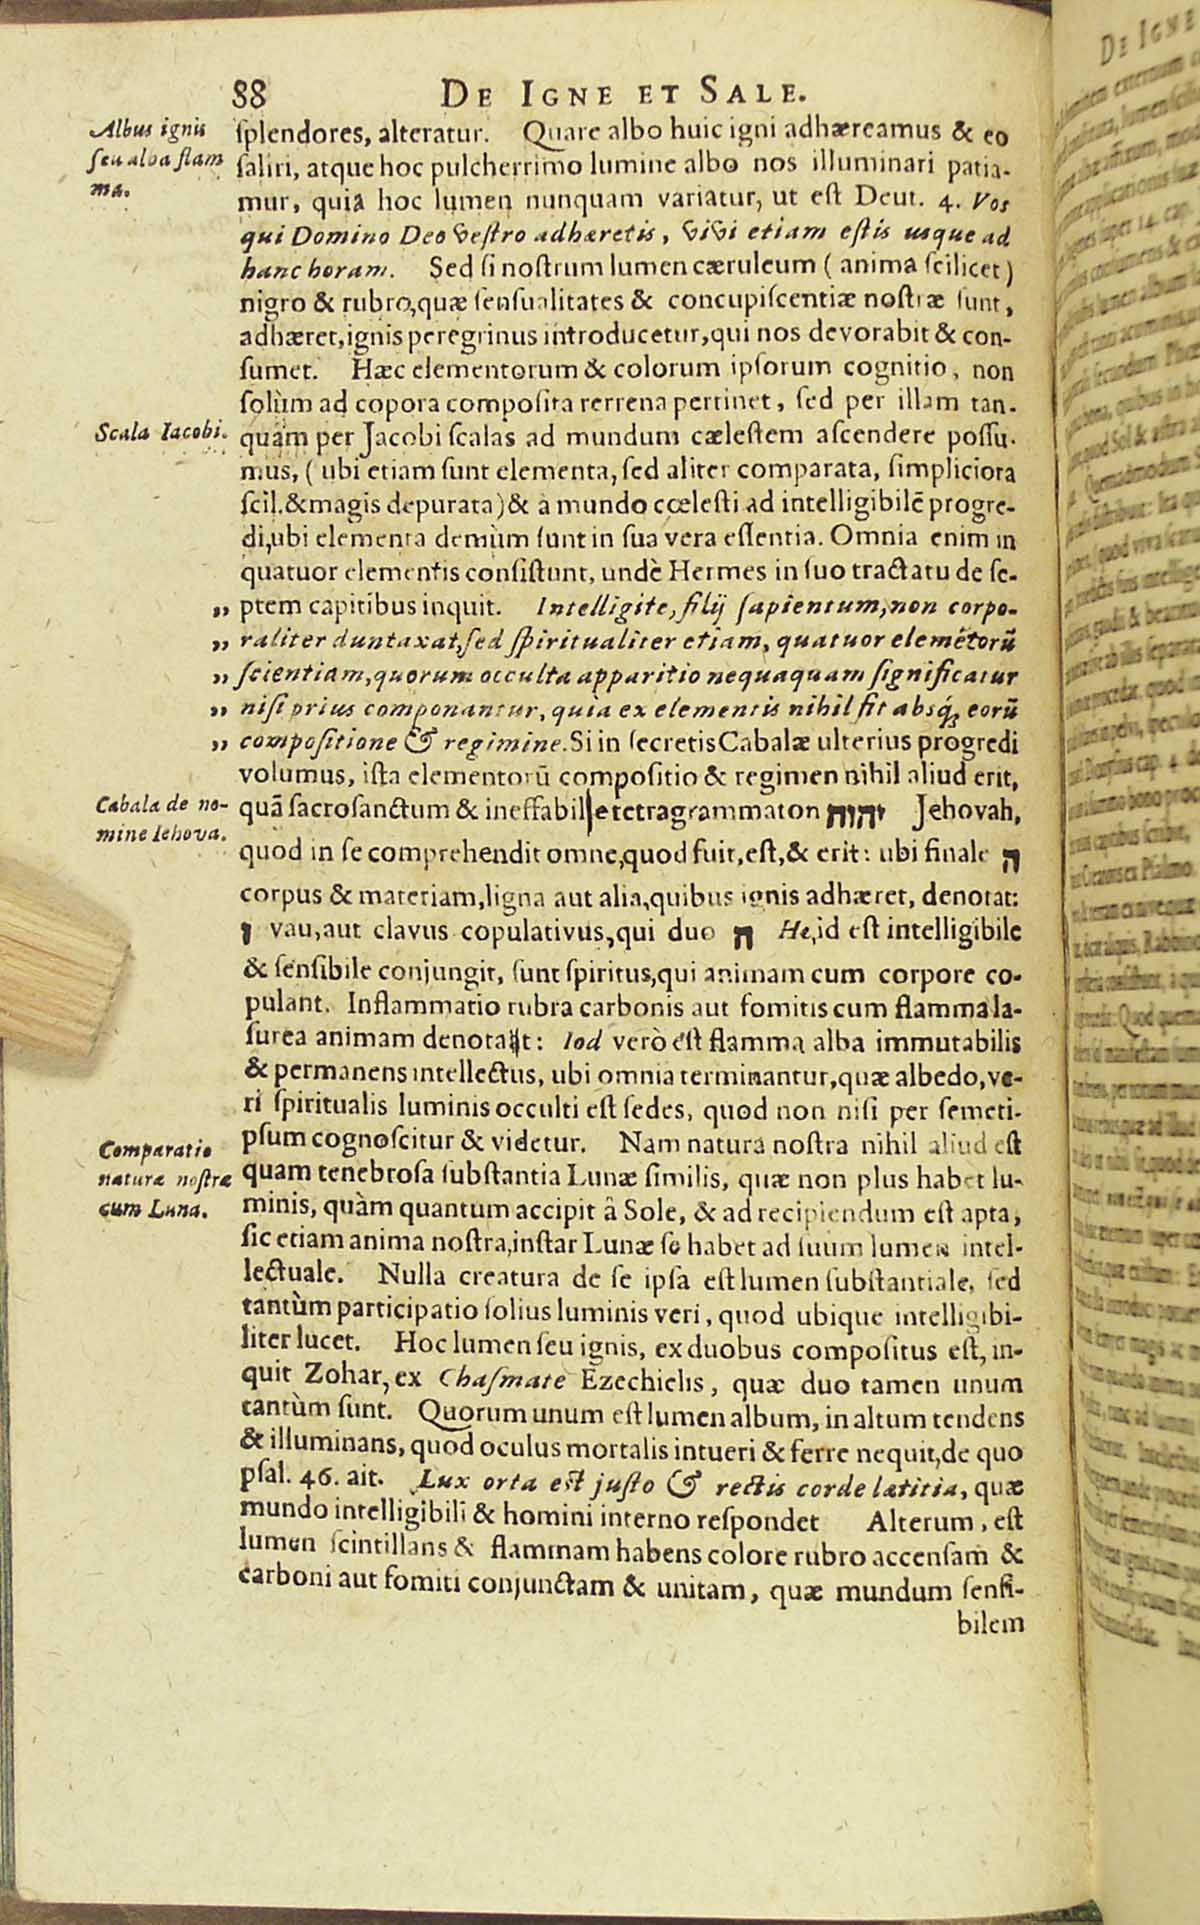 88 DE IGNE ET SALE.
Albus ignis
seu alba flam
ma.
splendores, alteratur. Quare albo huic igni adhæreamus & eo
saliri, atque hoc pulcherrimo lumine albo nos illuminari patia-
mur, quia hoc lumen nunquam variatur, ut est Deut. 4. Vos
qui Domino Deo vestro adhæretis, vivi etiam estis usque ad
hanc horam. Sed si nostrum lumen cæruleum ( anima scilicet )
nigro & rubro, quæ sensualitates & concupiscentiæ nostræ sunt,
adhæret, ignis peregrinus introducetur, qui nos devorabit & con-
sumet. Hæc elementorum & colorum ipsorum cognitio, non
solùm ad copora composita rerrena pertinet, sed per illam tan-
Scala Iacobi.
quàm per Jacobi scalas ad mundum cælestem ascendere possu-
mus, ( ubi etiam sunt elementa, sed aliter comparata, simpliciora
scil. & magis depurata) & à mundo cœlesti ad intelligibilē progre-
di, ubi elementa demùm sunt in sua vera essentia. Omnia enim in
quatuor elementis consistunt, undè Hermes in suo tractatu de se-
„ ptem capitibus inquit. Intelligite, filij sapientum, non corpo-
„ raliter duntaxat, sed spiritualiter etiam, quatuor elemētorū
„ scientiam, quorum occulta apparitio nequaquam significatur
„ nisi prius componantur, quia ex elementis nihil fit absq́; eorū
„ compositione & regimine. Si in secretis Cabalæ ulterius progredi
volumus, ista elementorū compositio & regimen nihil aliud erit,
Cabala de no-
mine Iehova.
quā sacrosanctum & ineffabile tetragrammaton יהוה Jehovah,
quod in se comprehendit omne, quod fuit, est, & erit: ubi finale ה
corpus & materiam, ligna aut alia, quibus ignis adhæret, denotat:
ו vau, aut clavus copulativus, qui duo ה He, id est intelligibile
& sensibile conjungit, sunt spiritus, qui animam cum corpore co-
pulant. Inflammatio rubra carbonis aut fomitis cum flamma la-
surea animam denotat: Iod verò est flamma alba immutabilis
& permanens intellectus, ubi omnia terminantur, quæ albedo, ve-
ri spiritualis luminis occulti est sedes, quod non nisi per semeti-
psum cognoscitur & videtur. Nam natura nostra nihil aliud est
Comparatio
naturæ nostræ
cum Luna.
quam tenebrosa substantia Lunæ similis, quæ non plus habet lu-
minis, quàm quantum accipit â Sole, & ad recipiendum est apta,
sic etiam anima nostra, instar Lunæ se habet ad suum lumen intel-
lectuale. Nulla creatura de se ipsa est lumen substantiale, sed
tantùm participatio solius luminis veri, quod ubique intelligibi-
liter lucet. Hoc lumen seu ignis, ex duobus compositus est, in-
quit Zohar, ex Chasmate Ezechielis, quæ duo tamen unum
tantùm sunt. Quorum unum est lumen album, in altum tendens
& illuminans, quod oculus mortalis intueri & ferre nequit, de quo
psal. 46. ait. Lux orta est justo & rectis corde lætitia, quæ
mundo intelligibili & homini interno respondet Alterum, est
lumen scintillans & flammam habens colore rubro accensam &
carboni aut fomiti conjunctam & unitam, quæ mundum sensi-
bilem
DE IGNE